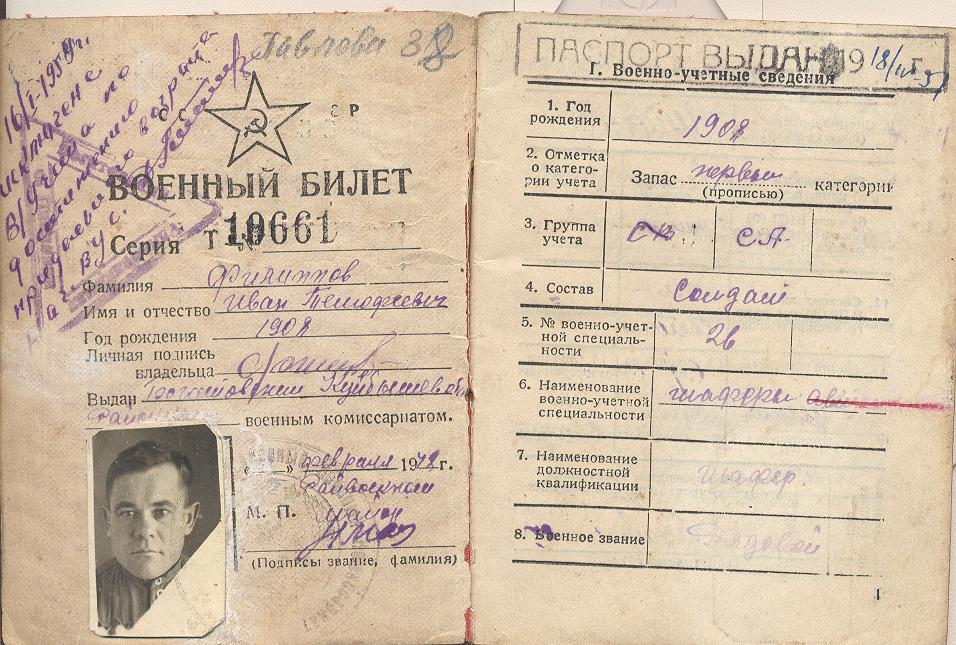 Павлова 38
16/I-1959г.
исключен с
в/учета по
достижению
предельного возраста
С С Р
ВОЕННЫЙ БИЛЕТ
Серия Т № 10661
Фамилия Филиппов
Имя и отчество Иван Тимофеевич
Год рождения 1908
Личная подпись
владельца
Выдан Куйбышевской
военным комиссариатом.
« » февраля 1948 г.
Райвоенком
М. П. майор
(Подписы звание, фамилия)
ПАСПОРТ ВЫДАН 19 г.
I. Военно-учетные сведения
1. Год
рождения 1908
2. Отметка
о катего-
рии учета Запас первой категории
(прописью)
3. Группа
учета СА
4. Состав Солдат
5. № военно-учет-
ной специаль-
ности 26
6. Наименование
военно-учетной
специальности шоферы
7. Наименование
должностной
квалификации шофер
8. Военное звание Рядовой
1